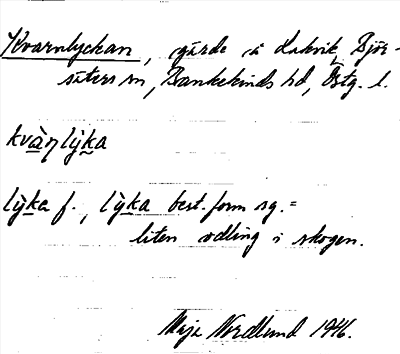 Kvarnlyckan, gärde i Lakvik, Björ-
säters sn, Bankekinds hd, Östg. l.
kvà̱ɳlỳḵa
lỳḵa f., lỳḵa best. form sg. =
liten odling i skogen.
Maja Nordlund 1946.